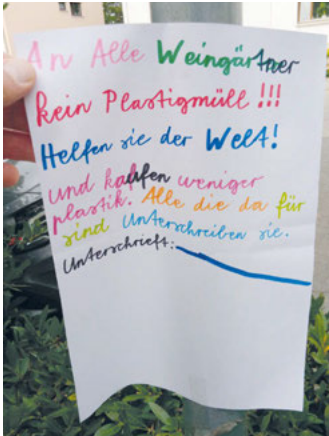 An Alle Weingärtner
Kein Plastigmüll !!!
Helfen sie der Welt!
und kaufen weniger
plastik. Alle die da für
sind Unterschreiben sie.
Unterschrieft: